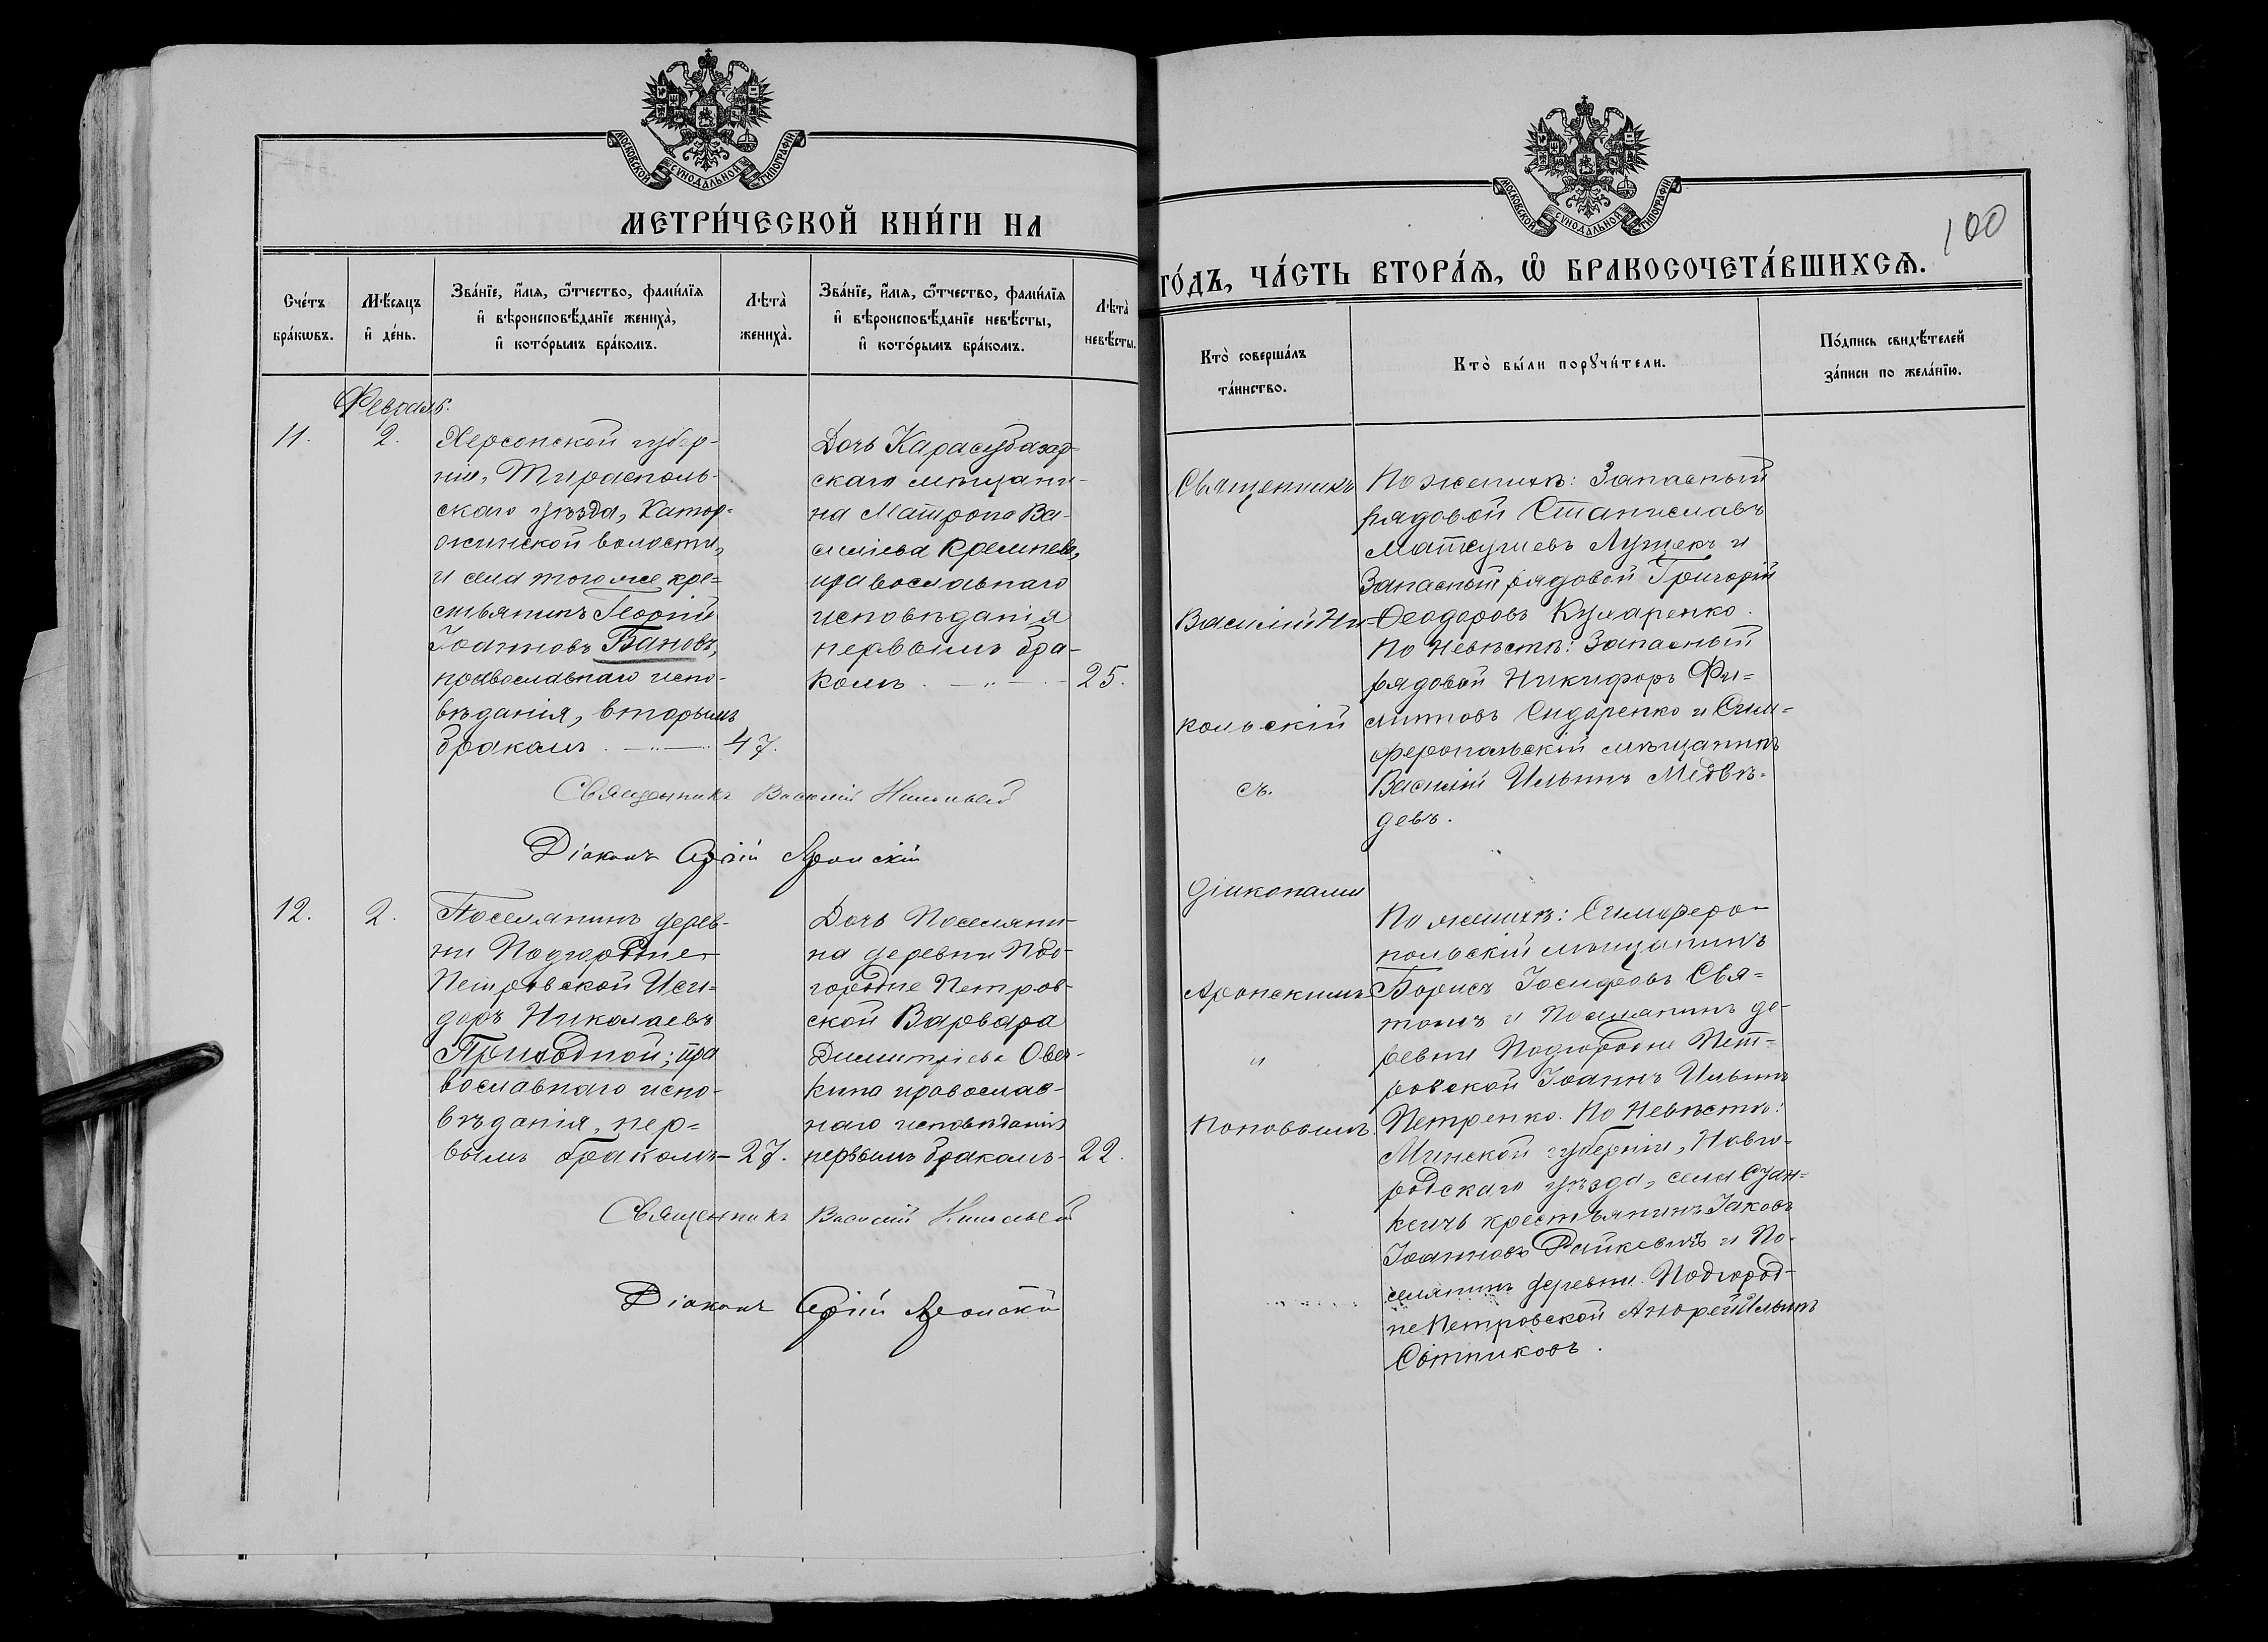 МОСКОВСКОЙ СѴНОДАЛЬНОЙ ТИПОГРАФІИ
МЕТРИ́ЧЕСКОЙ КНИ́ГИ НА
Сче́тъ бра́кѡвъ.
Мѣ́сяцъ и҆ де́нь.
Зва́нїе, и҆́мя, ѻ҆́тчество, фами́лїя
и҆ вѣроисповѣ́данїе жениха̀,
и҆ кото́рымъ бра́комъ.
Лѣта̀ жениха̀.
Зва́нїе, и҆́мя, ѻ҆́тчество, фами́лїя
и҆ вѣроисповѣ́данїе невѣ́сты,
и҆ кото́рымъ бра́комъ.
Лѣта̀ невѣ́сты.
Февраль.
11.
2.
Херсонской губер-
ніи, Тирасполь-
скаго уѣзда,
волости,
и села того же кре=
стьянинъ Георгій
Іоанновъ Бановъ,
православнаго испо-
вѣданія, вторымъ
бракомъ
47.
Дочь Карасубазар-
скаго мѣщани-
на Матрона Ва-
силіева Кремнева,
православнаго
исповѣданія
первымъ бра-
комъ
25.
Священникъ Василій Никольскій
Діаконъ Сергій Аронскій
12.
2.
Поселянинъ дерев-
ни Подгородне
Петровской Иси=
доръ Николаевъ
Приходной; пра
вославнаго испо-
вѣданія, пер=
вымъ бракомъ-
27.
Дочь Поселяни-
на деревни Под-
городне Петров-
ской Варвара
Димитріева Овеч-
кина православ-
наго исповѣданія
первымъ бракомъ-
22.
Священникъ Василій Никольскій
Діаконъ Сергій Аронскій
МОСКОВСКОЙ СѴНОДАЛЬНОЙ ТИПОГРАФІИ
100
ГО́ДЪ, ЧА́СТЬ ВТОРА́Ѧ, Ѽ БРАКОСОЧЕТА́ВШИХСѦ.
Кто̀ соверша́лъ
та́инство.
Кто̀ бы́ли порꙋчи́тели.
По́дпись свидѣ́телей
за́писи по жела́нїю.
Священникъ
Василій Ни-
кольскій
съ
діаконами
Аронскимъ
и
Поповымъ.
По женихѣ: Запасный
рядовой Станиславъ
Матеушевъ и
Запасный рядовой Григорій
Ѳеодоровъ Кушнаренко.
По невѣстѣ: Запасный
рядовой Никифоръ Фи=
липповъ Сидоренко и Сим-
феропольскій мѣщанинъ
Василій Ильинъ Медвѣ-
девъ.
По женихѣ: Симферо-
польскій мѣщанинъ
Борисъ Іосифовъ Свя=
и Поселянинъ де-
ревни Подгородне Пет-
ровской Іоаннъ Ильинъ
Петренко. По невѣстѣ:
Минской губерніи, Новго-
родскаго уѣзда, села
крестьянинъ Іаковъ
Іоанновъ Райкевичъ и По-
селянинъ деревни Подгород-
не Петровской Андрей Ильинъ
Сотниковъ.